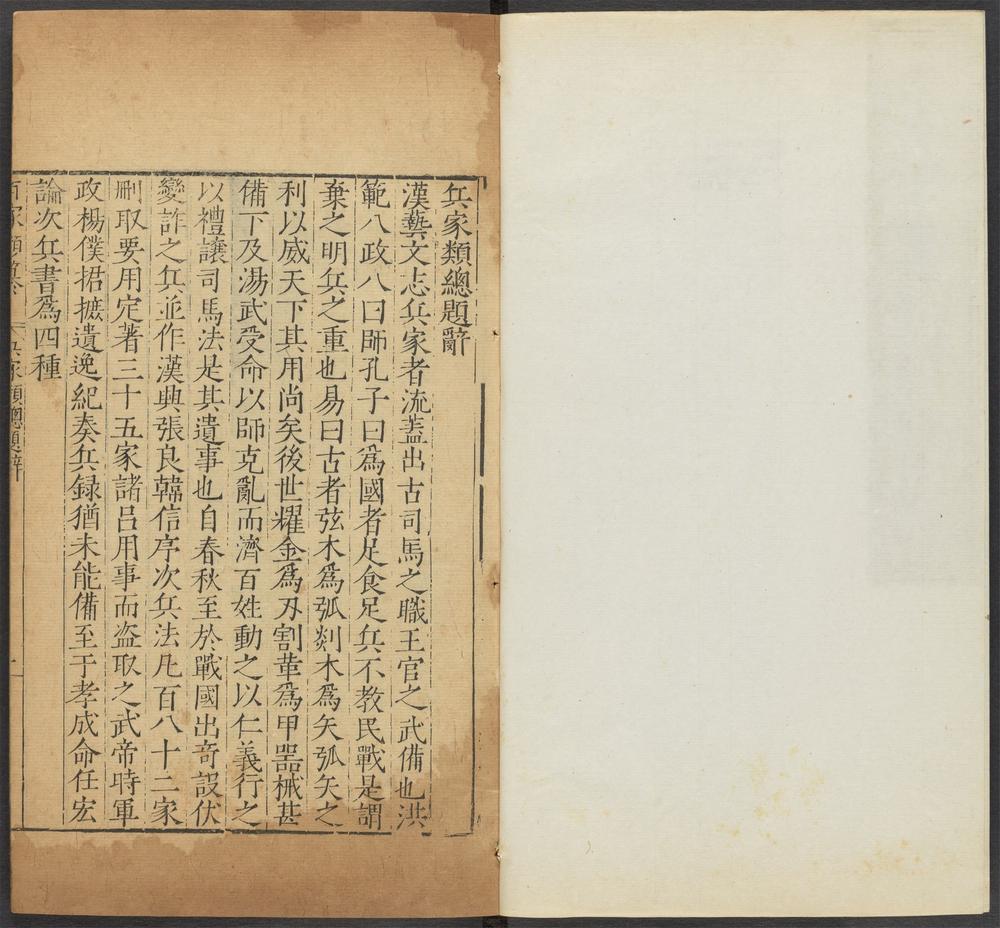 兵家類總題辭
漢藝文志兵家者流蓋出古司馬之職王官之武備也洪
範八政八曰師孔子曰爲國者足食足兵不教民戰是謂
棄之明兵之重也易曰古者弦木爲弧剡木爲矢弧矢之
利以威天下其用尚矣後世燿金爲刃割革爲甲器械甚
備下及湯武受命以師克亂而濟百姓動之以仁義行之
以禮讓司馬法是其遺事也自春秋至於戰國出奇設伏
變詐之兵並作漢興張良韓信序次兵法凡百八十二家
刪取要用定著三十五家諸呂用事而盜取之武帝時軍
政楊僕捃摭遺逸紀奏兵録猶未能備至于孝成命任宏
論次兵書爲四種
百家類纂 兵家類總題辭 一